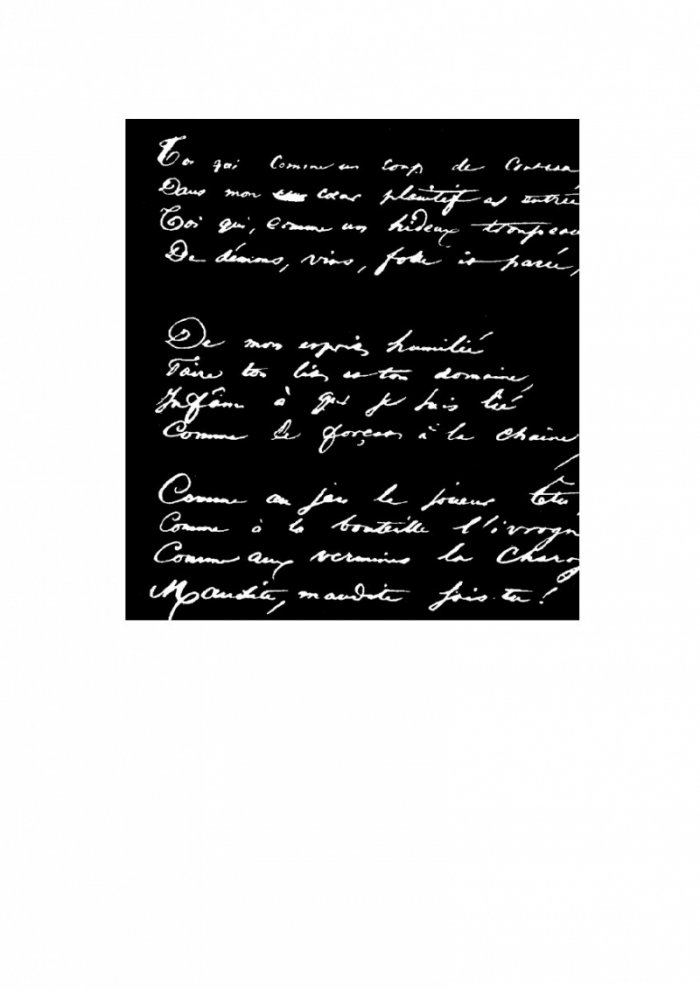 Toi qui comme un coup de couteau
Dans mon cœur plaintif es entrée
Toi qui, comme un hideux troupeau
De démons, vins, folle et parée,
De mon esprit humilié
Faire ton lit et ton domaine,
Infâme à qui je suis lié
Comme le forçat à la chaine,
Comme au jeu le joueur têtu
Comme à la bouteille l'ivrogn
Comme aux vermines la charog
Maudite, maudite sois-tu!